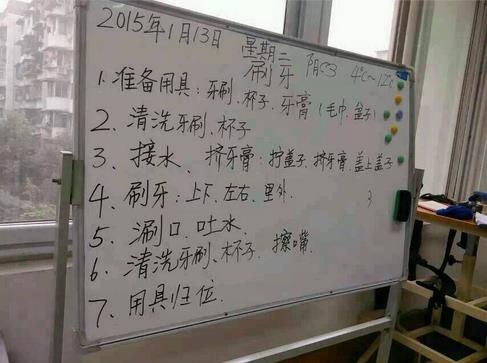 2015年1月13日 星期二 阴 4℃~12℃
刷牙
1. 准备用具:牙刷、杯子、牙膏(毛巾、盆子)
2、清洗牙刷、杯子
3、接水、挤牙膏:拧盖子、挤牙膏、盖上盖子
4、刷牙:上下、左右、里外.
5、涮口、吐水.
6、清洗牙刷、杯子、擦嘴.
7、用具归位.